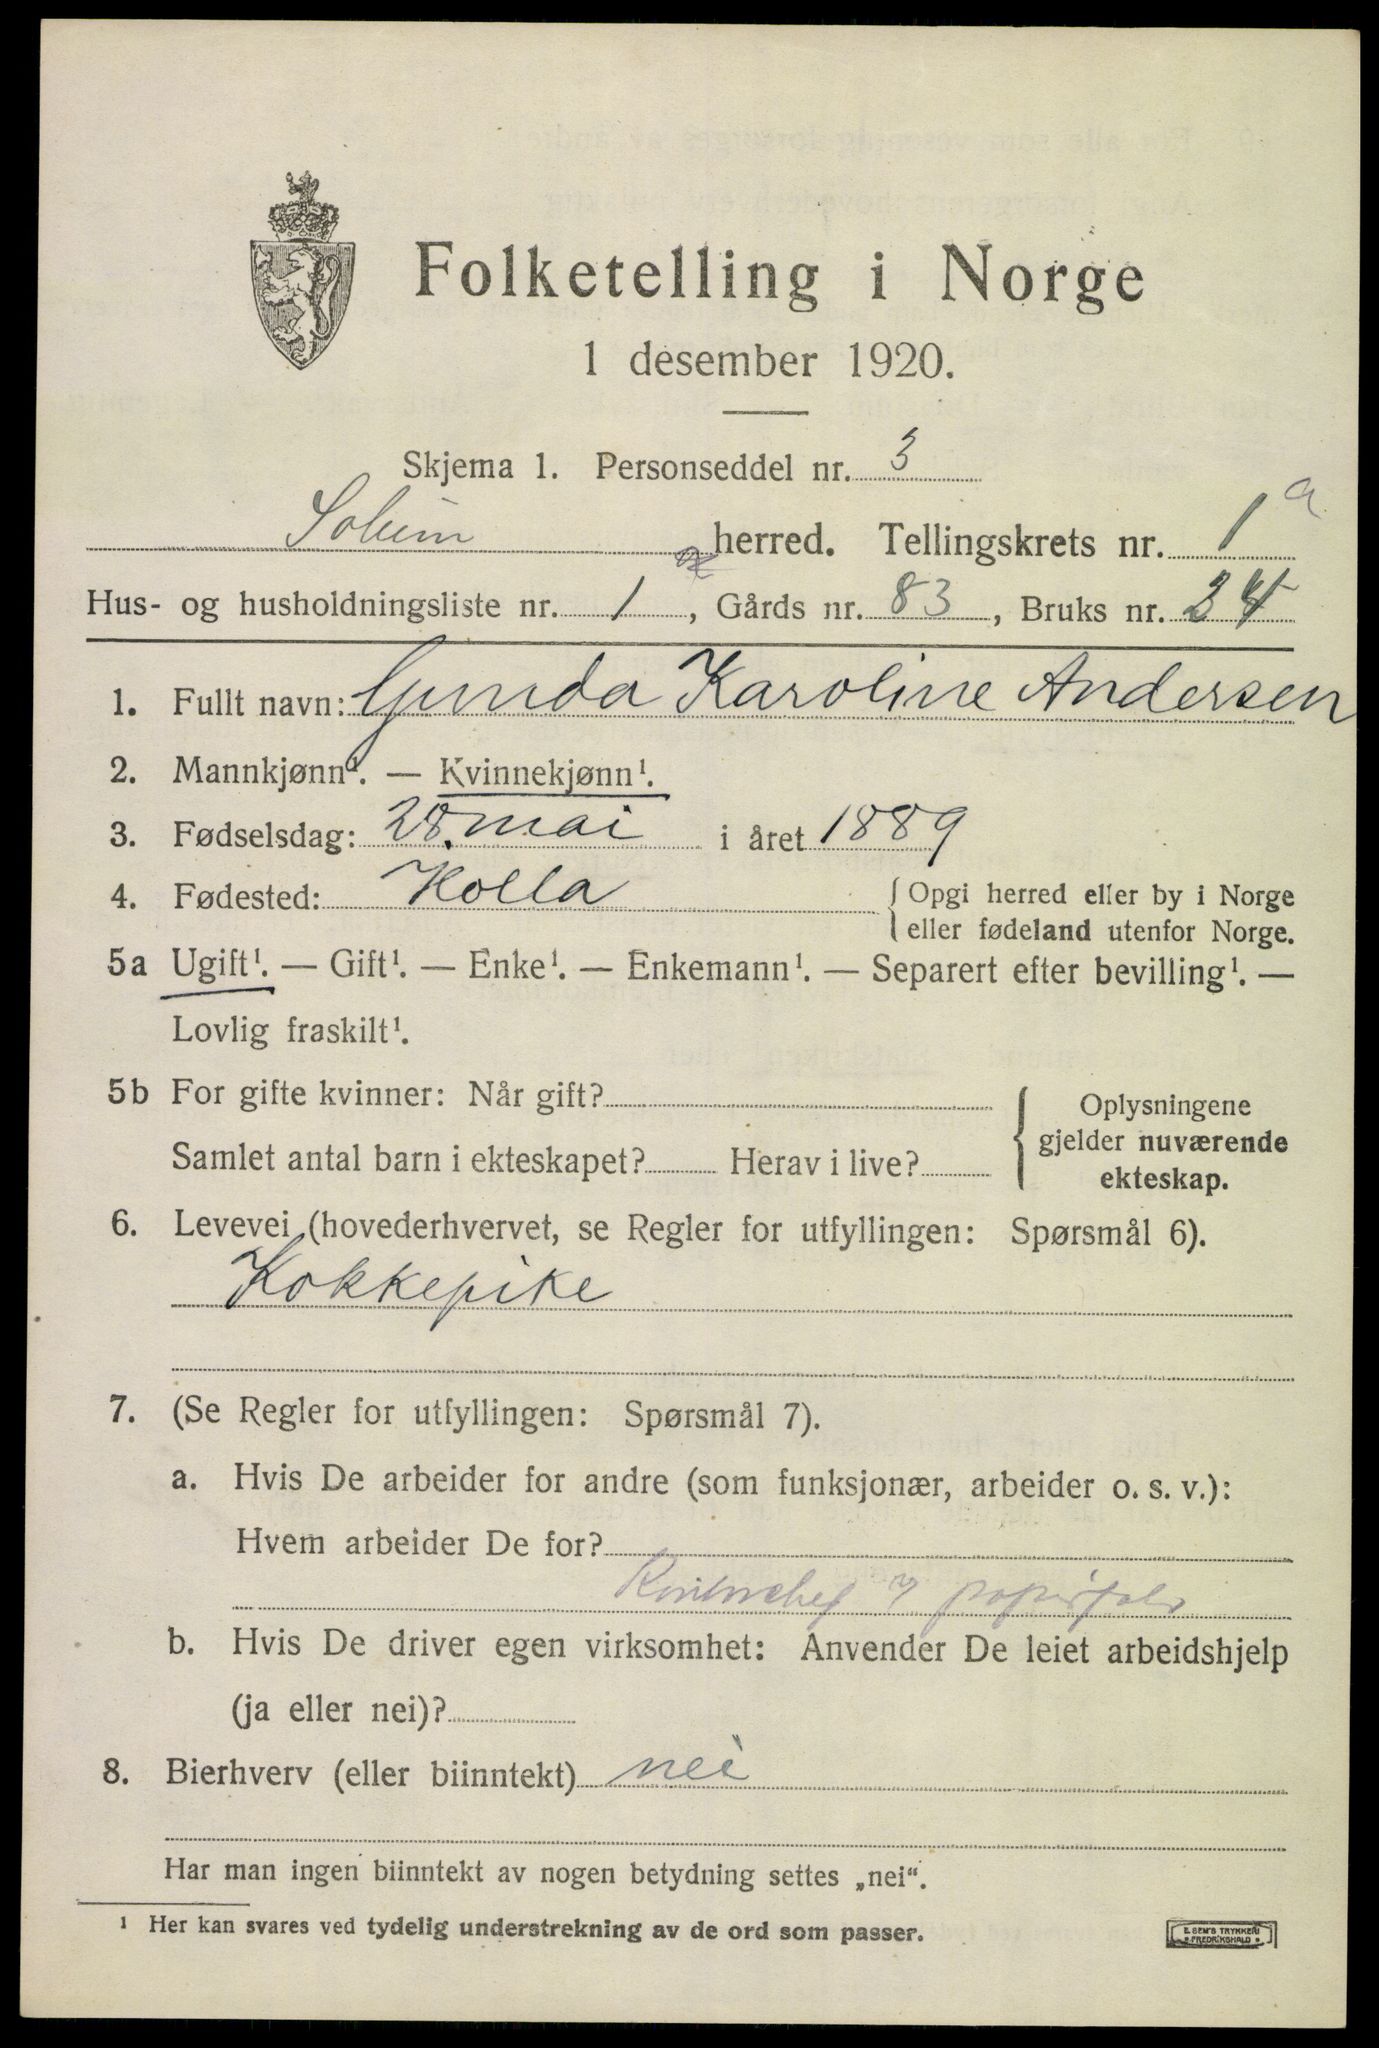 Folketelling i Norge
1 desember 1920.
Skjema 1. Personseddel nr. 3
Solum herred. Tellingskrets nr. 1 a
Hus- og husholdningsliste nr. 1, Gårds nr. 83, Bruks nr. 24
1. Fullt navn: Gunda Karoline Andersen
2. Mannkjønn¹. — Kvinnekjønn¹.
3. Fødselsdag: 28. mai i året 1889
4. Fødested: Holla { Opgi herred eller by i Norge
eller fødeland utenfor Norge.
5a Ugift¹. — Gift¹. — Enke¹. — Enkemann¹. — Separert efter bevilling¹. —
Lovlig fraskilt¹.
5b For gifte kvinner: Når gift?
Samlet antal barn i ekteskapet? Herav i live?
Oplysningene
gjelder nuværende
ekteskap.
6. Levevei (hovederhvervet, se Regler for utfyllingen: Spørsmål 6).
Kokkepike
7. (Se Regler for utfyllingen: Spørsmål 7).
a. Hvis De arbeider for andre (som funksjonær, arbeider o. s. v.):
Hvem arbeider De for?
papirfabr
b. Hvis De driver egen virksomhet: Anvender De leiet arbeidshjelp
(ja eller nei)?
8. Bierhverv (eller biinntekt) nei
Har man ingen biinntekt av nogen betydning settes „nei“.
¹ Her kan svares ved tydelig understrekning av de ord som passer.
E. SEM'S TRYKKERI
FREDRIKSHALD